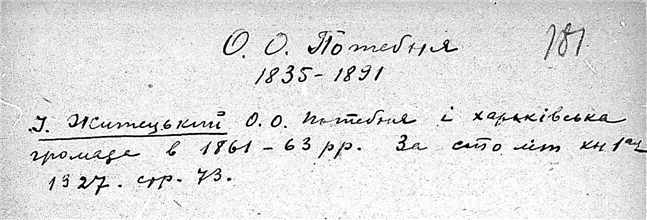 О. О. Потебня 181
1835-1891
І. Житецький О. О. Потебня і харьківська
громада в 1861-63 рр. За сто літ кн 1ая
1927. стр. 73.